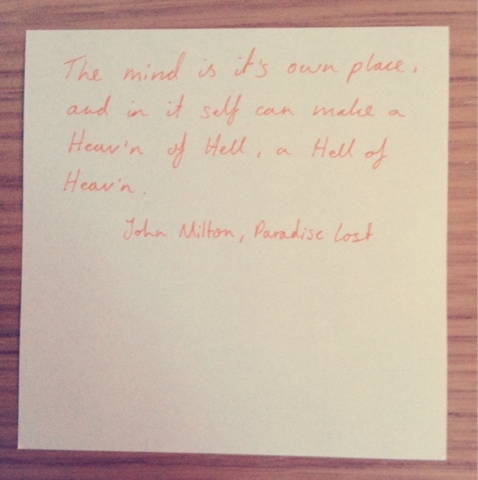 The mind is it's own place,
and in it self can make a
Heav'n of Hell, a Hell of
Heav'n.
John Milton, Paradise Lost